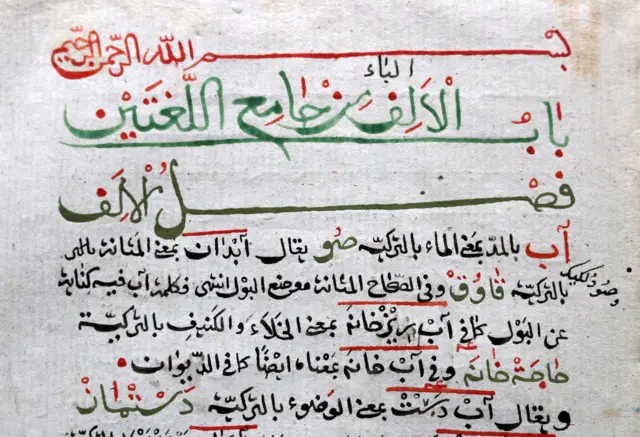 بسم الله الرحمن الرحيم
الباء
باب الألف من جامع اللغتين
فصل الألف
آب بالمدّ بمعنى الماء بالتركيه صو يقال آبدان بمعنى المثانة بالتر
بالتركيه قاوق وفي الصحاح المثانة موضع البول انتهى فكلمة آب فيه كناية
عن البول كما في آب ريزخانه بمعنى الخلاء والكنيف بالتركية
حاجة خانه وفي آب خانه بمعناه ايضا كما في الديوان
ويقال آب دست بمعنى الوضوء بالتركيه دستمان